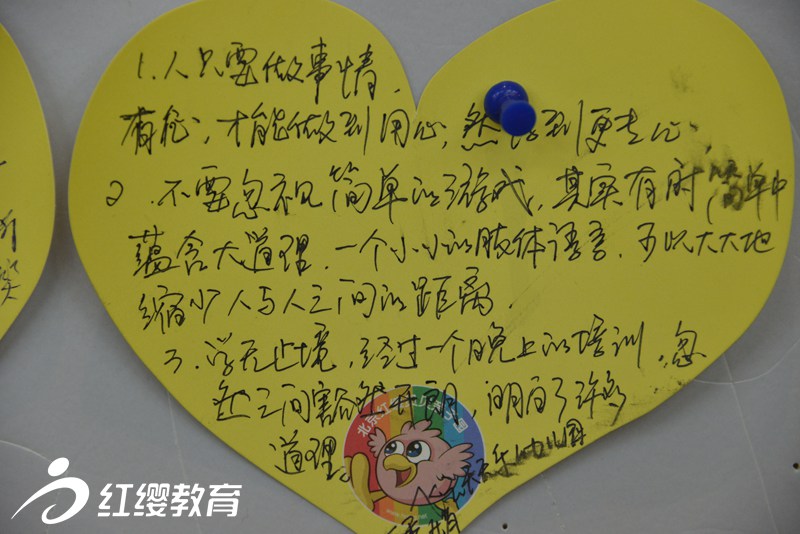 1.人只要做事情,
有心,才能做到用心,然 到更 心
2.不要忽视简单的游戏,其实有时简单中
蕴含大道理.一个小小的肢体语言.可以大大地
缩小人与人之间的距离.
3.学无止境,经过一个晚上的培训.忽
然之间豁然开朗,明白了许多
道理。
北京红
乐幼儿园
红缨教育